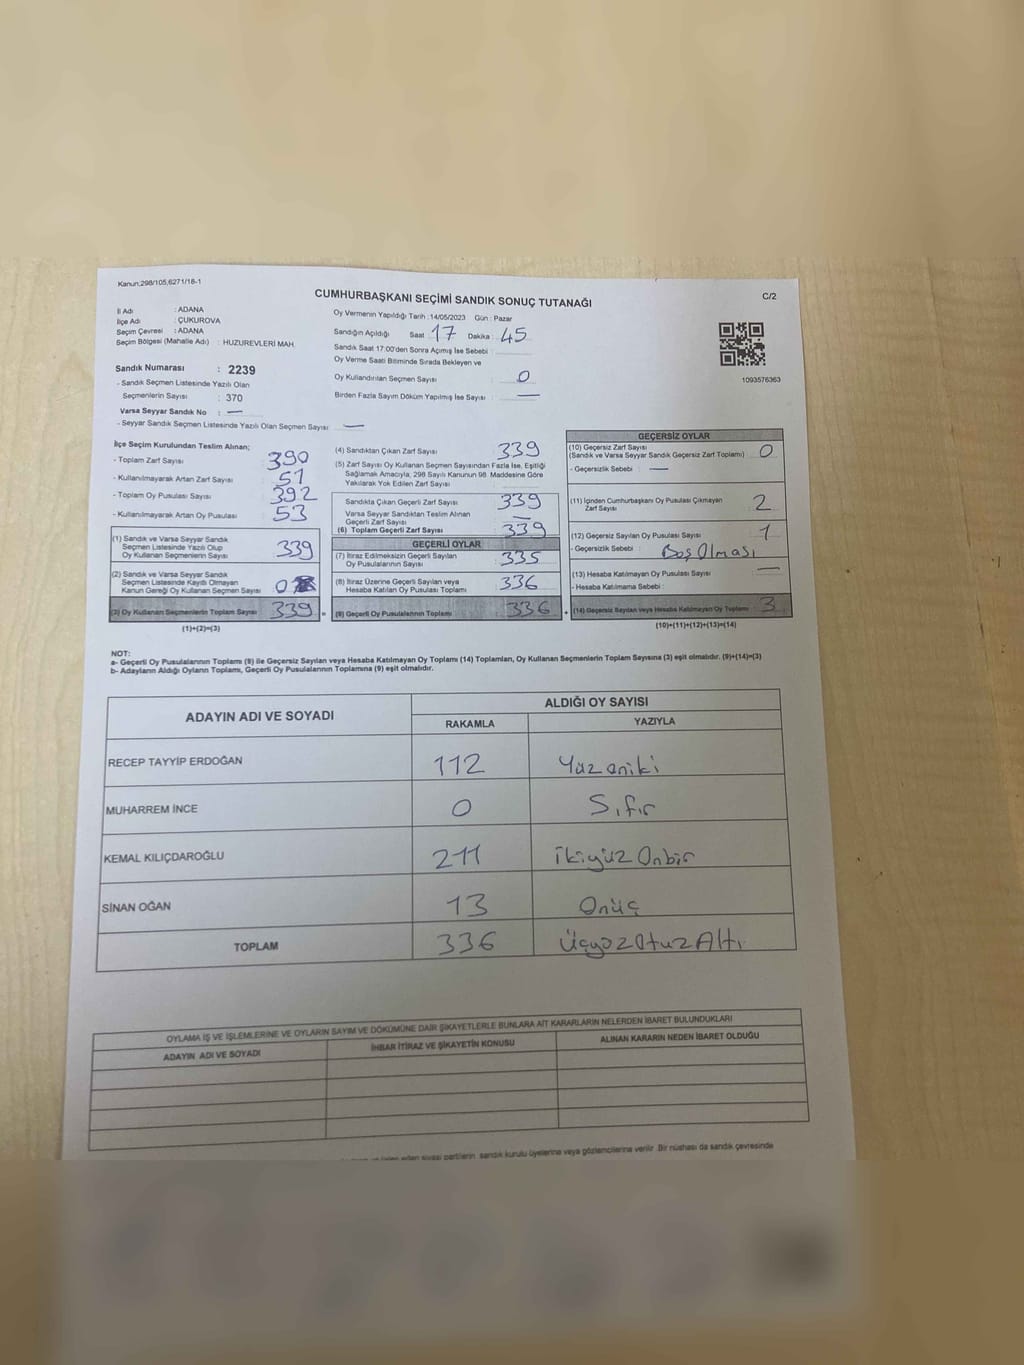 Kanun:298/105,6271/18-1
CUMHURBAŞKANI SEÇİMİ SANDIK SONUÇ TUTANAĞI
C/2
İl Adı : ADANA
İlçe Adı : ÇUKUROVA
Seçim Çevresi : ADANA
Seçim Bölgesi (Mahalle Adı) : HUZUREVLERİ MAH.
Sandık Numarası : 2239
- Sandık Seçmen Listesinde Yazılı Olan
Seçmenlerin Sayısı : 370
Varsa Seyyar Sandık No : —
- Seyyar Sandık Seçmen Listesinde Yazılı Olan Seçmen Sayısı : —
Oy Vermenin Yapıldığı Tarih :14/05/2023 Gün : Pazar
Sandığın Açıldığı Saat 17 Dakika : 45
Sandık Saat 17:00'den Sonra Açımış İse Sebebi :
Oy Verme Saati Bitiminde Sırada Bekleyen ve
Oy Kullandırılan Seçmen Sayısı : 0
Birden Fazla Sayım Döküm Yapılmış İse Sayısı : —
1093576363
İlçe Seçim Kurulundan Teslim Alınan;
- Toplam Zarf Sayısı 390
- Kullanılmayarak Artan Zarf Sayısı 51
- Toplam Oy Pusulası Sayısı 392
- Kullanılmayarak Artan Oy Pusulası 53
(1) Sandık ve Varsa Seyyar Sandık
Seçmen Listesinde Yazılı Olup
Oy Kullanan Seçmenlerin Sayısı 339
(2) Sandık ve Varsa Seyyar Sandık
Seçmen Listesinde Kayıtlı Olmayan
Kanun Gereği Oy Kullanan Seçmen Sayısı 0
(3) Oy Kullanan Seçmenlerin Toplam Sayısı 339 =
(1)+(2)=(3)
(4) Sandıktan Çıkan Zarf Sayısı 339
(5) Zarf Sayısı Oy Kullanan Seçmen Sayısından Fazla İse, Eşitliği
Sağlamak Amacıyla, 298 Sayılı Kanunun 98. Maddesine Göre
Yakılarak Yok Edilen Zarf Sayısı
Sandıkta Çıkan Geçerli Zarf Sayısı 339
Varsa Seyyar Sandıktan Teslim Alınan
Geçerli Zarf Sayısı —
(6) Toplam Geçerli Zarf Sayısı 339
GEÇERLİ OYLAR
(7) İtiraz Edilmeksizin Geçerli Sayılan
Oy Pusulasının Sayısı 335
(8) İtiraz Üzerine Geçerli Sayılan veya
Hesaba Katılan Oy Pusulası Toplamı 336
(9) Geçerli Oy Pusulalarının Toplamı 336 +
GEÇERSİZ OYLAR
(10) Geçersiz Zarf Sayısı
(Sandık ve Varsa Seyyar Sandık Geçersiz Zarf Toplamı) 0
- Geçersizlik Sebebi : —
(11) İçinden Cumhurbaşkanı Oy Pusulası Çıkmayan
Zarf Sayısı 2
(12) Geçersiz Sayılan Oy Pusulası Sayısı 1
- Geçersizlik Sebebi : Boş Olması
(13) Hesaba Katılmayan Oy Pusulası Sayısı —
- Hesaba Katılmama Sebebi :
(14) Geçersiz Sayılan veya Hesaba Katılmayan Oy Toplamı 3
(10)+(11)+(12)+(13)=(14)
NOT:
a- Geçerli Oy Pusulalarının Toplamı (9) ile Geçersiz Sayılan veya Hesaba Katılmayan Oy Toplamı (14) Toplamları, Oy Kullanan Seçmenlerin Toplam Sayısına (3) eşit olmalıdır. (9)+(14)=(3)
b- Adayların Aldığı Oyların Toplamı, Geçerli Oy Pusulalarının Toplamına (9) eşit olmalıdır.
ADAYIN ADI VE SOYADI
ALDIĞI OY SAYISI
RAKAMLA YAZIYLA
RECEP TAYYİP ERDOĞAN 112 Yüz oniki
MUHARREM İNCE 0 Sıfır
KEMAL KILIÇDAROĞLU 211 ikiyüz Onbir
SİNAN OĞAN 13 Onüç
TOPLAM 336 Üçyüz Otuz Altı
OYLAMA İŞ VE İŞLEMLERİNE VE OYLARIN SAYIM VE DÖKÜMÜNE DAİR ŞİKAYETLERLE BUNLARA AİT KARARLARIN NELERDEN İBARET BULUNDUKLARI
ADAYIN ADI VE SOYADI İHBAR İTİRAZ VE ŞİKAYETİN KONUSU ALINAN KARARIN NEDEN İBARET OLDUĞU
siyasi partilerin sandık kurulu üyelerine veya gözlemcilerine verilir. Bir nüshası da sandık çevresinde